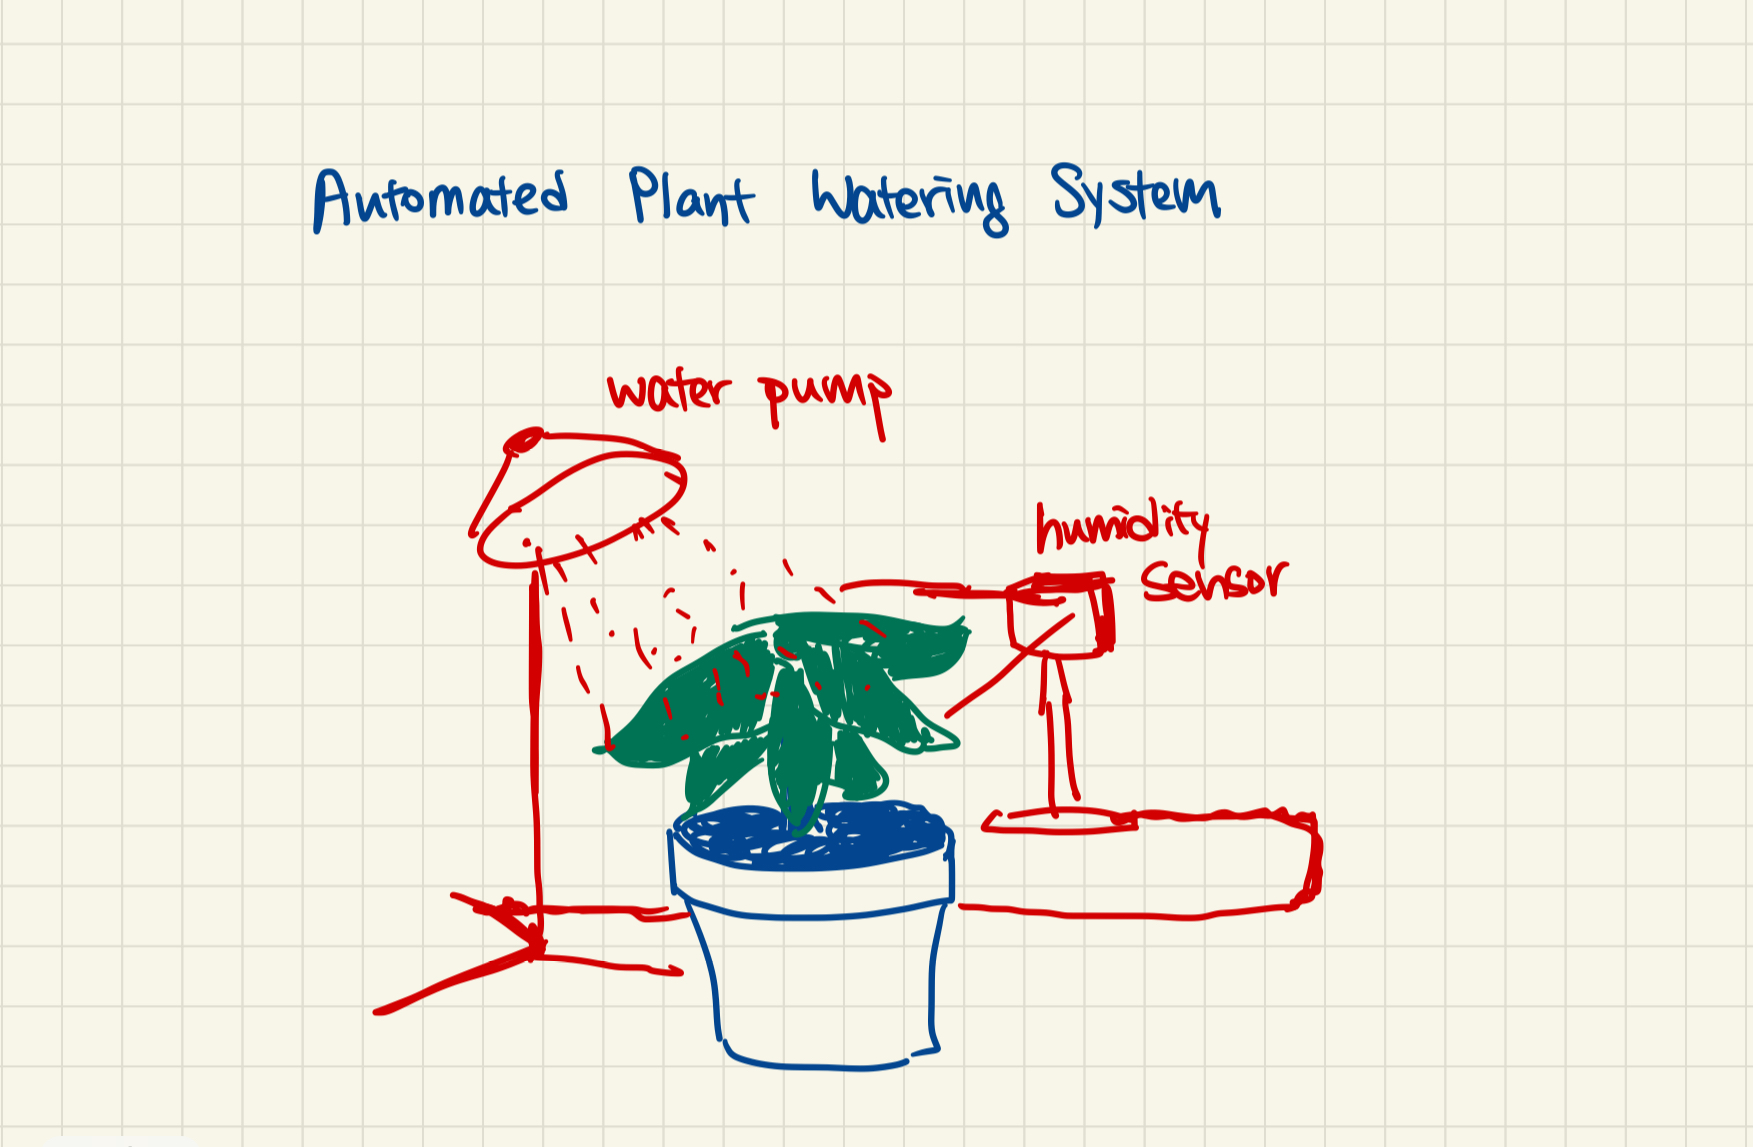 Automated Plant Watering System
water pump
humidity
sensor